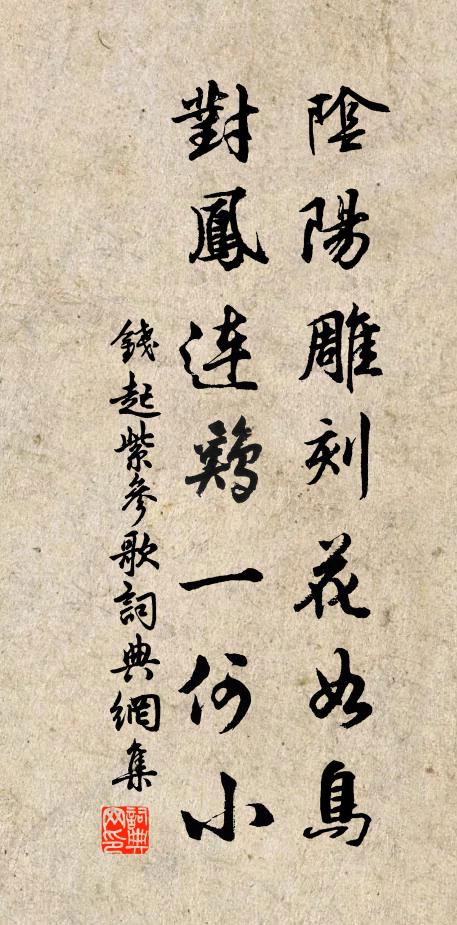 陰陽雕刻花如鳥
對鳳連鷄一何小
錢起紫參歌詞典網集
詞典网印